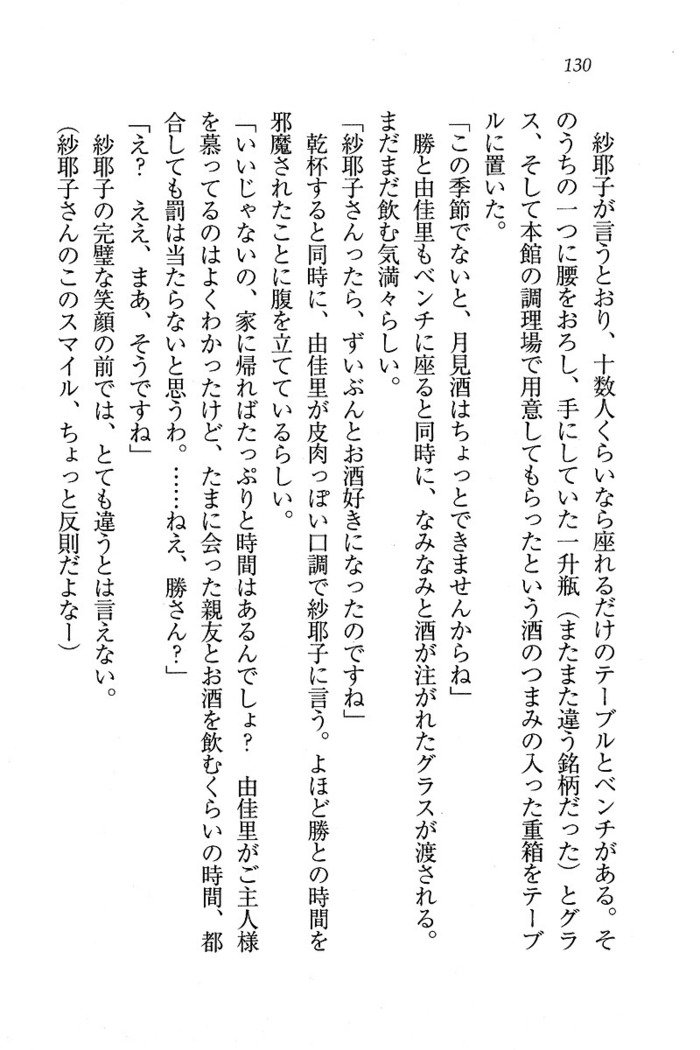 130
紗耶子が言うとおり、十数人くらいなら座れるだけのテーブルとベンチがある。そ
のうちの一つに腰をおろし、手にしていた一升瓶（またまた違う銘柄だった）とグラ
ス、そして本館の調理場で用意してもらったという酒のつまみの入った重箱をテーブ
ルに置いた。
「この季節でないと、月見酒はちょっとできませんからね」
勝と由佳里もベンチに座ると同時に、なみなみと酒が注がれたグラスが渡される。
まだまだ飲む気満々らしい。
「紗耶子さんったら、ずいぶんとお酒好きになったのですね」
乾杯すると同時に、由佳里が皮肉っぽい口調で紗耶子に言う。よほど勝との時間を
邪魔されたことに腹を立てているらしい。
「いいじゃないの、家に帰ればたっぷりと時間はあるんでしょ？　由佳里がご主人様
を慕ってるのはよくわかったけど、たまに会った親友とお酒を飲むくらいの時間、都
合しても罰は当たらないと思うわ。……ねえ、勝さん？」
「え？　ええ、まあ、そうですね」
紗耶子の完璧な笑顔の前では、とても違うとは言えない。
（紗耶子さんのこのスマイル、ちょっと反則だよなー）